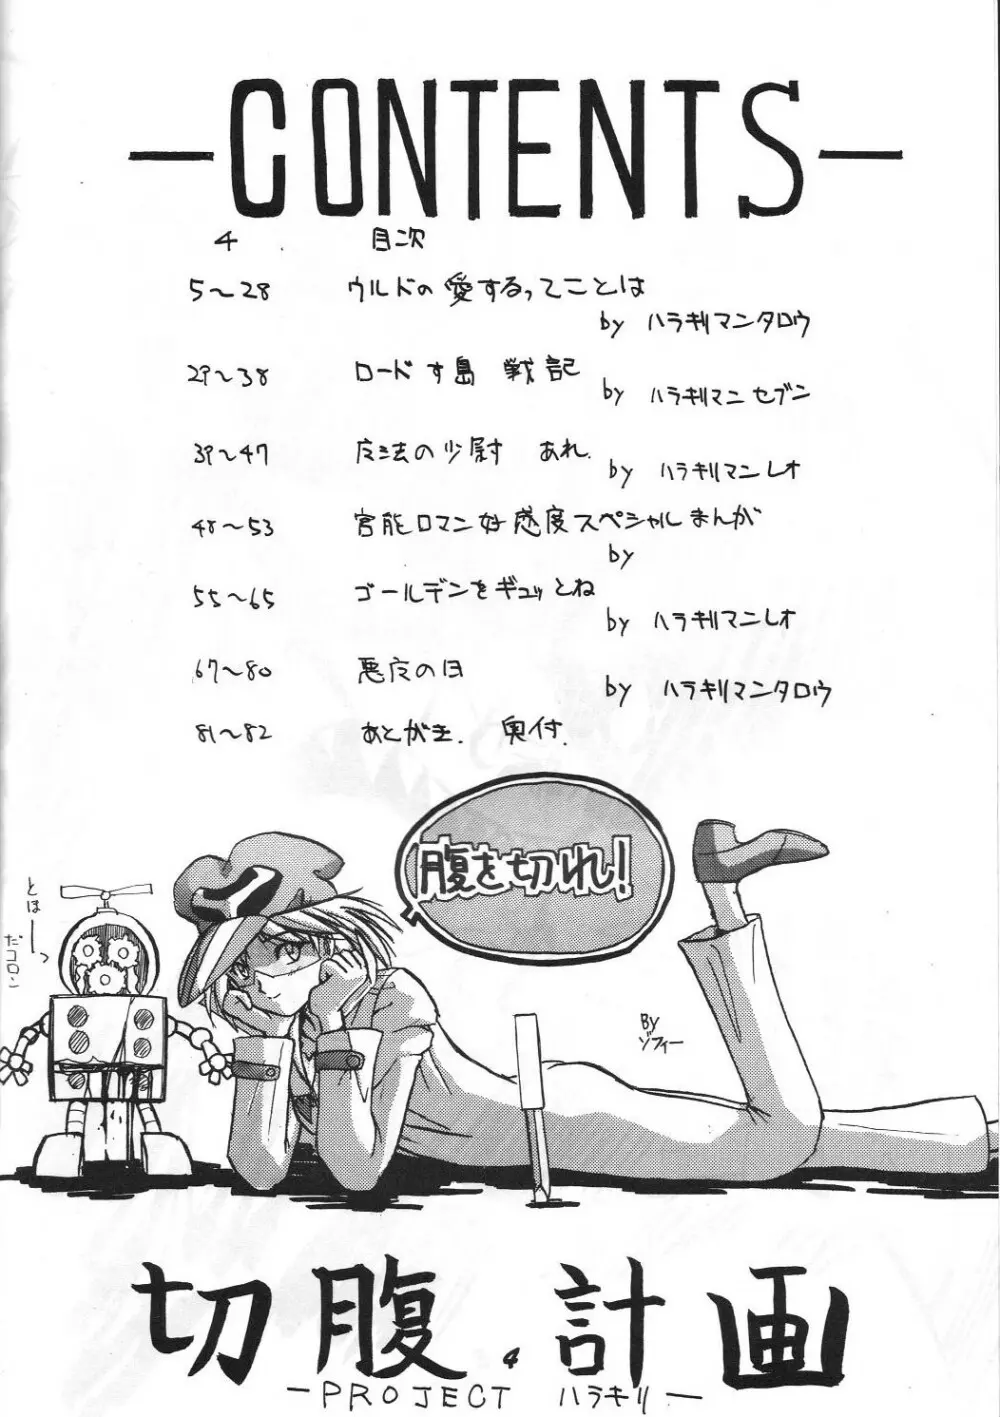 CONTENTS
4 目次
5〜28 ウルドの愛するってことは
by ハラキリマンタロウ
29〜38 ロードす島 戦記
by ハラキリマンセブン
39〜47 法の少尉 あれ.
by ハラキリマンレオ
48〜53 官能ロマン好感度スペシャルまんが
by
55〜65 ゴールデンをギュッとね
by ハラキリマンレオ
67〜80 悪夜の日
by ハラキリマンタロウ
81〜82 あとがき. 奥付.
腹を切れ!
とほーっ
だコロン
By
ゾフィー
切腹計画
4
PROJECT ハラキリ